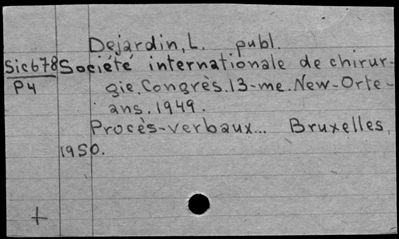 Dejardin, L. publ.
Sic678 Société internationale de chirur-
P4 gie. Congrès. 13-me. New-Orte-
ans. 1949.
Procès-verbaux... Bruxelles,
1950.
+